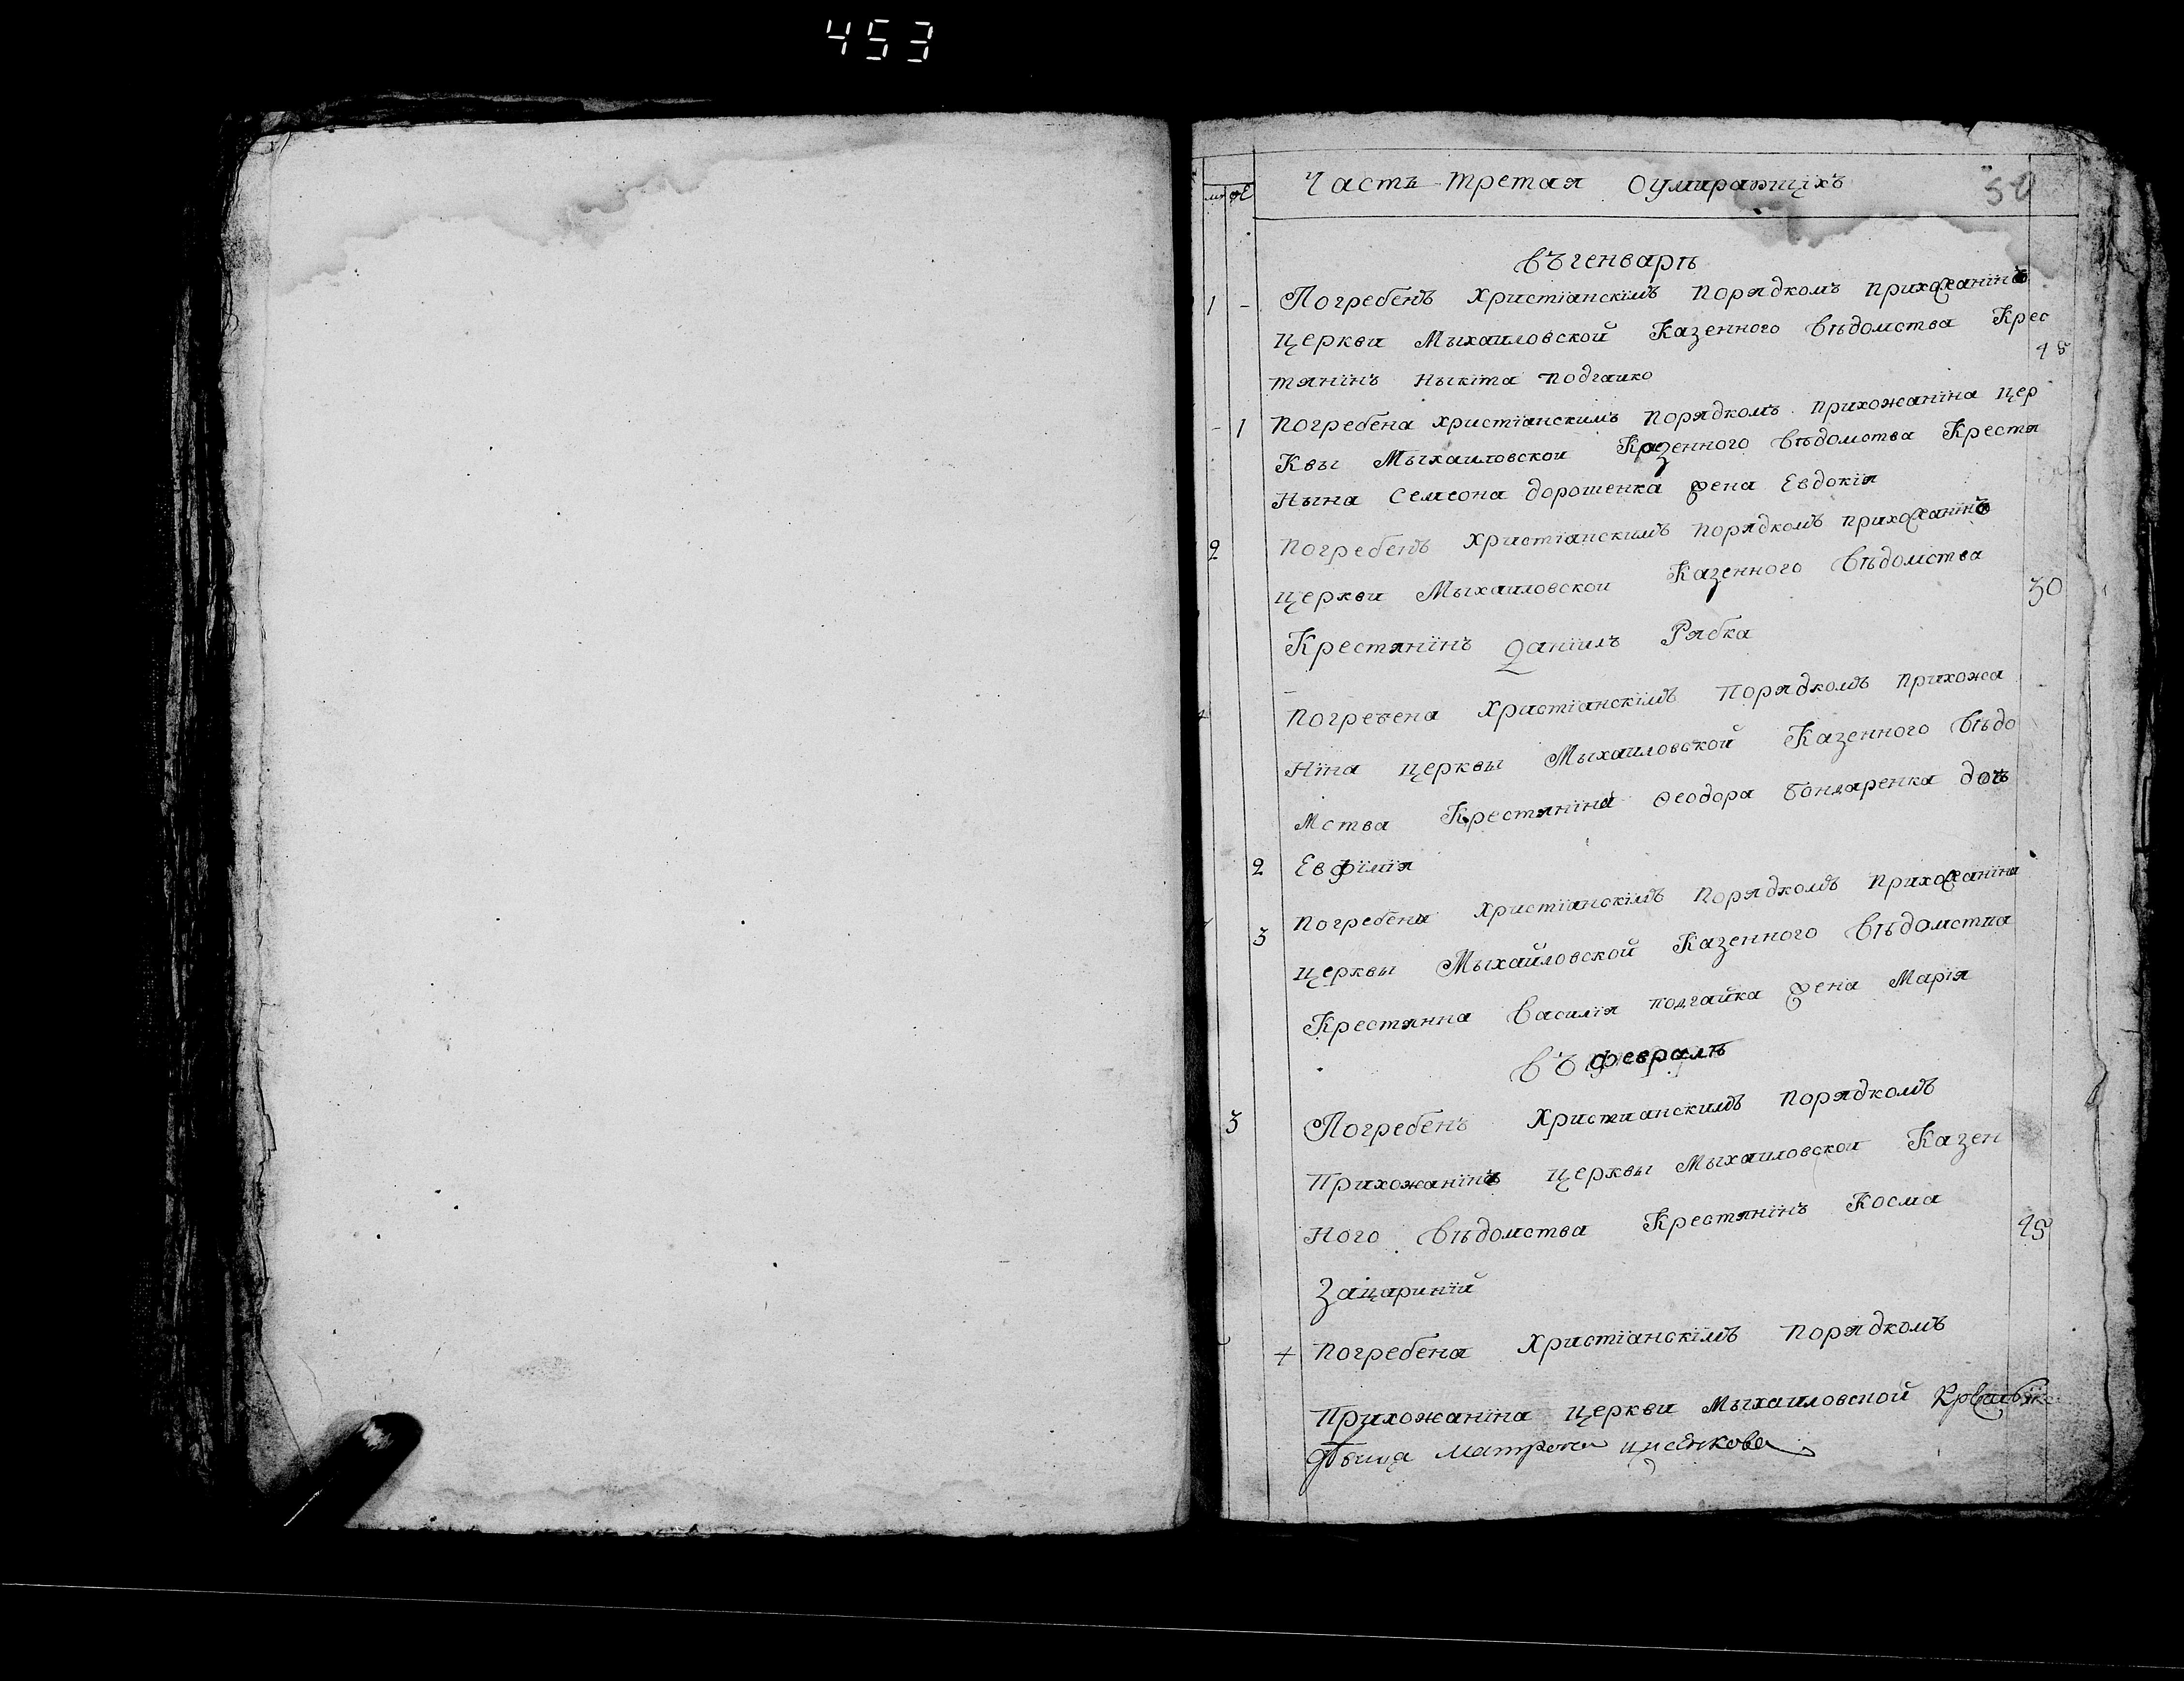 453
Часть третая Оумирающихъ 50
въ генварѣ
1 - Погребенъ Христіанскімъ Порядкомъ прихожанінъ
церкви Мыхаиловской Казенного вѣдомства Крес
тянінъ Ныкіта подгаико 45
- 1 Погребена христіанскимъ Порядкомъ прихожаніна цер
Квы Мыхаиловскои Казенного вѣдомства Крестя
Нына Семеона дорошенка жена Евдокія
2 Погребенъ Христіанскимъ Порядкомъ прихожанінъ
церкви Мыхаиловскои Казенного вѣдомства 30
Крестянінъ Даніилъ Рябка
Погребена Христіанскімъ Порядкомъ Прихожа
Ніна церквы Мыхаиловской Казенного вѣдо
Мства Крестяніна Феодора Бондаренка дочь
2 Евфімія
Погребена Христіанскімъ Порядкомъ Прихожаніна
3 церквы Мыхайловской Казенного вѣдомства
Крестянна Василія подгайка жена Марія
въ февралѣ
3 Погребенъ Христианскимъ Порядкомъ
Прихожанінъ церквы Мыхаиловской Казен
Ного вѣдомства Крестянінъ Косма 45
Зацариній
4 Погребена Христіанскімъ Порядкомъ
Прихожаніна церкви Мыхаиловской
Матрона